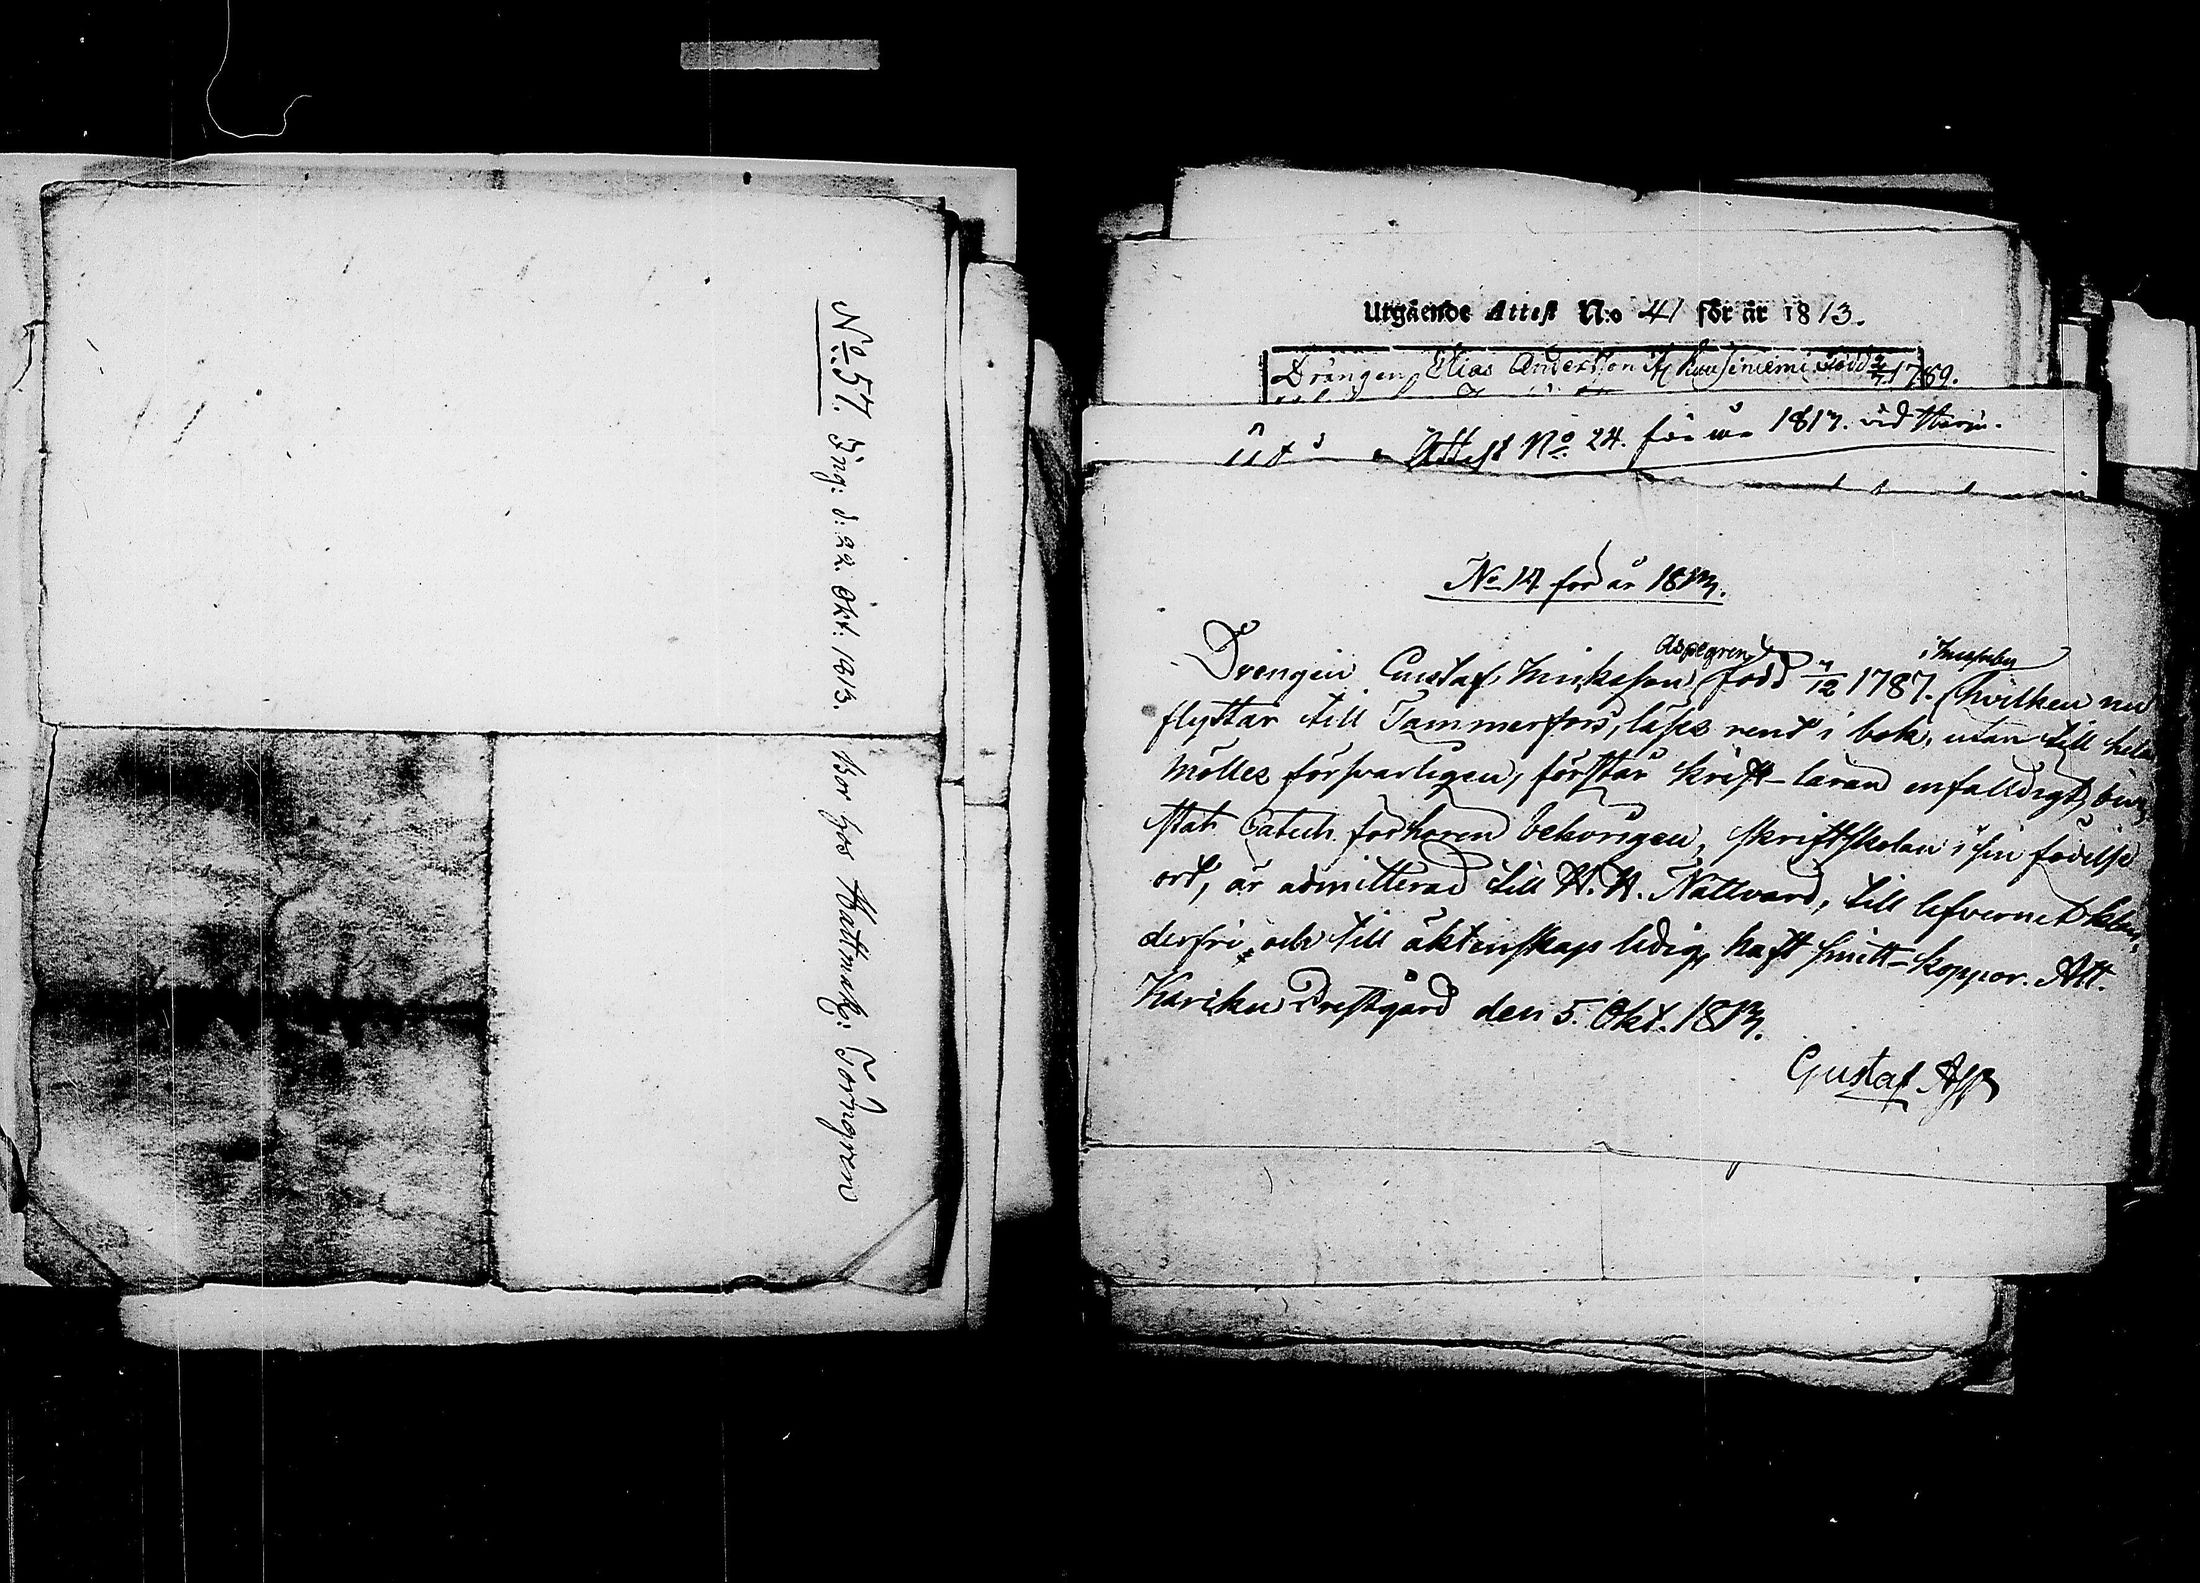 No 57. Ing: d: 22 Okt: 1813. Bor hos Hattmak: Törngren
Utgående Attest N:o 41 för år 1813.
Drängen Elias Andersson född 1789.
Attest No 24. för år 1813. vid
No 14 för år 1813.
Aspegren
Drengen Gustaf Henriksson född 12 1787. hvilken nu
flyttar till Tammerfors, läser rent i bok, utan till hela
Möllers försvarligen, förstår Krist-läran enfalldigt,
stat Catech. förhören behörigen, skriftskolan i sin födelse
ort, är admitterad till H. H. Nattvard, till lefvernet klan-
derfri och till äktenskap ledig, haft smitt-koppor. Att.
Kariku Prestgård den 5. Okt. 1813.
Gustaf Asp